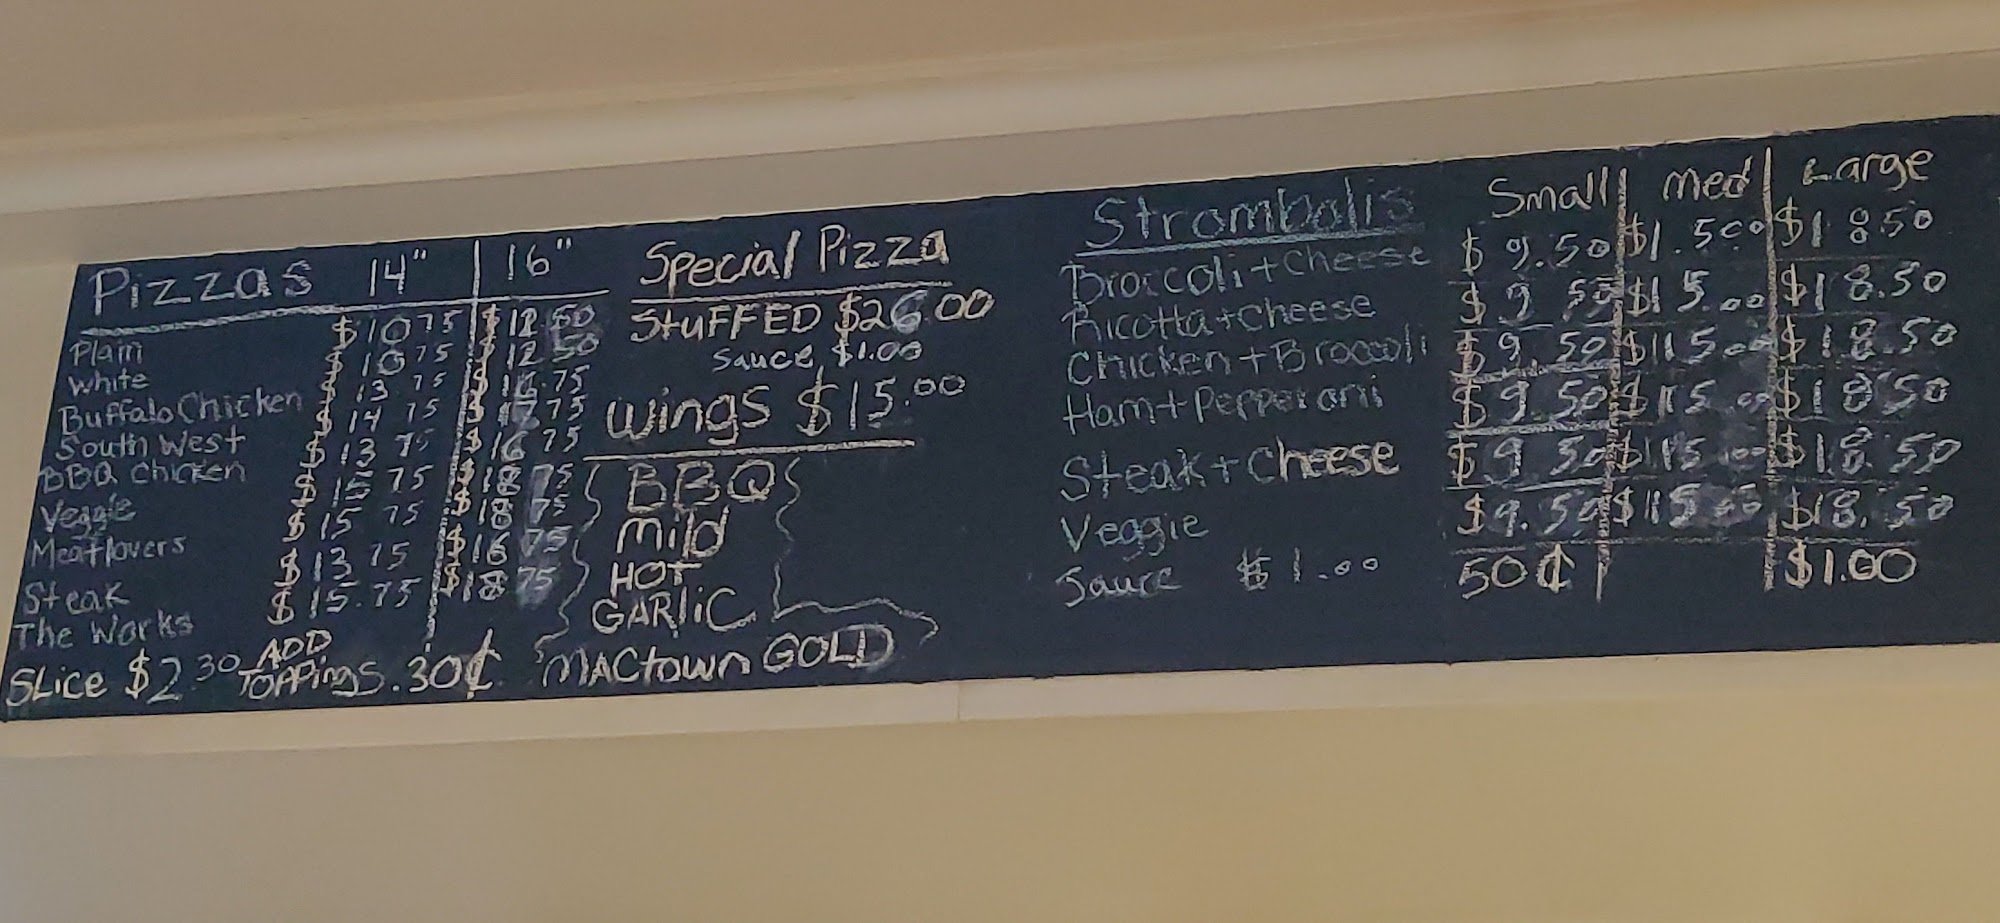 Pizzas 14" 16"
Plain $10 75 $12 50
White $10 75 $12 50
Buffalo Chicken $13 75 $16.75
South West $14 75 75
BBQ Chicken $13 75 $16 75
Veggie $15 75 $18 75
Meatlovers $15 75 $18 75
Steak $13 75 $16 75
The Works $15.75 $18 75
SLice $2.30 ADD TOPPiNgS .30¢
Special Pizza
STuFFED $26.00
Sauce $1.00
Wings $15.00
BBQ
Mild
HOT
GARLiC
MACtown GOLD
Strombolis Small Med Large
Broccoli + Cheese $9.50 $1.500 $18 50
Ricotta + Cheese $9 50 $15.00 $18.50
Chicken + Broccoli $9.50 $15.00 $18.50
Ham + Pepperoni $9.50 $15.00 $18.50
Steak + Cheese $9 50 $15.00 $18.50
Veggie $9.50 $15.00 $18.50
Sauce $1.00 50¢ $1.00